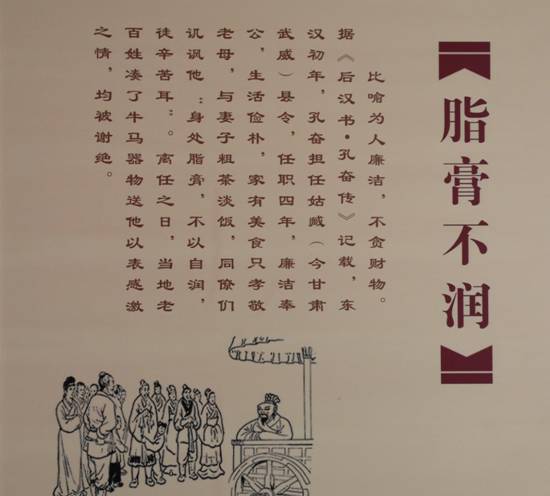 【脂膏不润】
比喻为人廉洁，不贪财物。
据《后汉书•孔奋传》记载，东
汉初年，孔奋担任姑臧（今甘肃
武威）县令，任职四年，廉洁奉
公，生活俭朴，家有美食只孝敬
老母，与妻子粗茶淡饭，同僚们
讥讽他：“身处脂膏，不以自润，
徒辛苦耳”。离任之日，当地老
百姓凑了牛马器物送他以表感激
之情，均被谢绝。